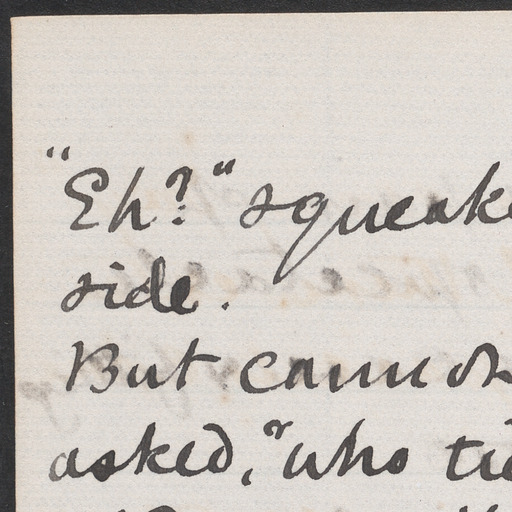 "Eh?" squeake
side.
But cannon
asked, "who tie